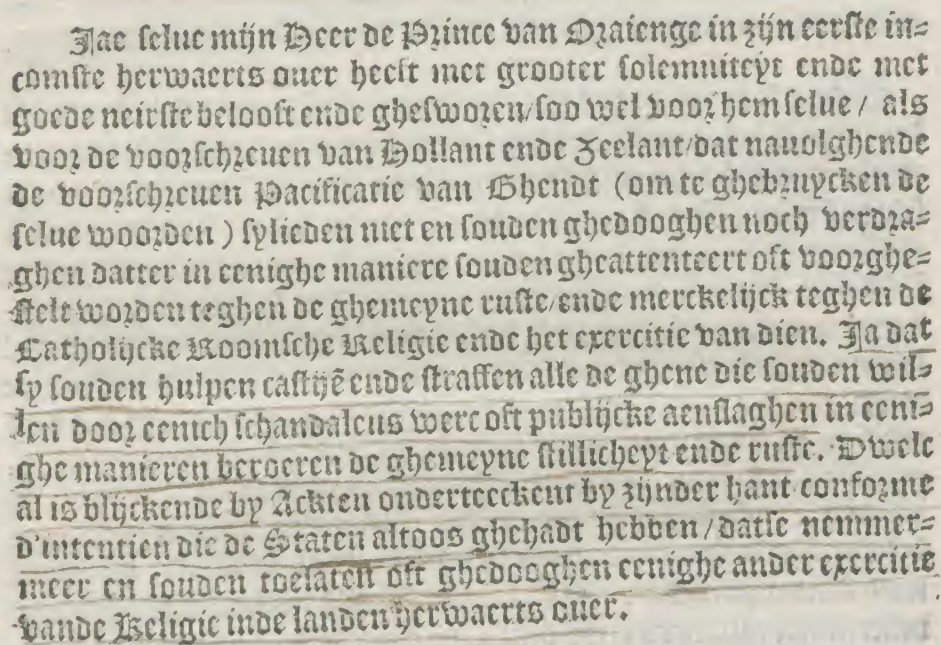 Jae selue mijn Heer de Prince van Oraienge in zijn eerste in=
comste herwaerts ouer heeft met grooter solemniteyt ende met
goede neirste belooft ende ghesworen/soo wel voor hem selue / als
voor de voorschreuen van Hollant ende Zeelant/dat nauolghende
de voorschreuen Pacificatie van Ghendt (om te ghebruycken de
selue woorden ) sylieden niet en souden ghedooghen noch verdra=
ghen datter in eenighe maniere souden gheattenteert oft voorghe=
stelt worden teghen de ghemeyne ruste/ende merckelijck teghen de
Catholijcke Roomsche Religie ende het exercitie van dien. Ja dat
sy souden hulpen castijē ende straffen alle de ghene die souden wil=
len door eenich schandaleus werc oft publijcke aenslaghen in eeni=
ghe manieren beroeren de ghemeyne stillicheyt ende ruste. Dwelc
al is blijckende by Ackten onderteeckent by zijnder hant conforme
d'intentien die de Staten altoos ghehadt hebben/datse nemmer=
meer en souden toelaten oft ghedooghen eenighe ander exercitie
vande Religie inde landen herwaerts ouer.